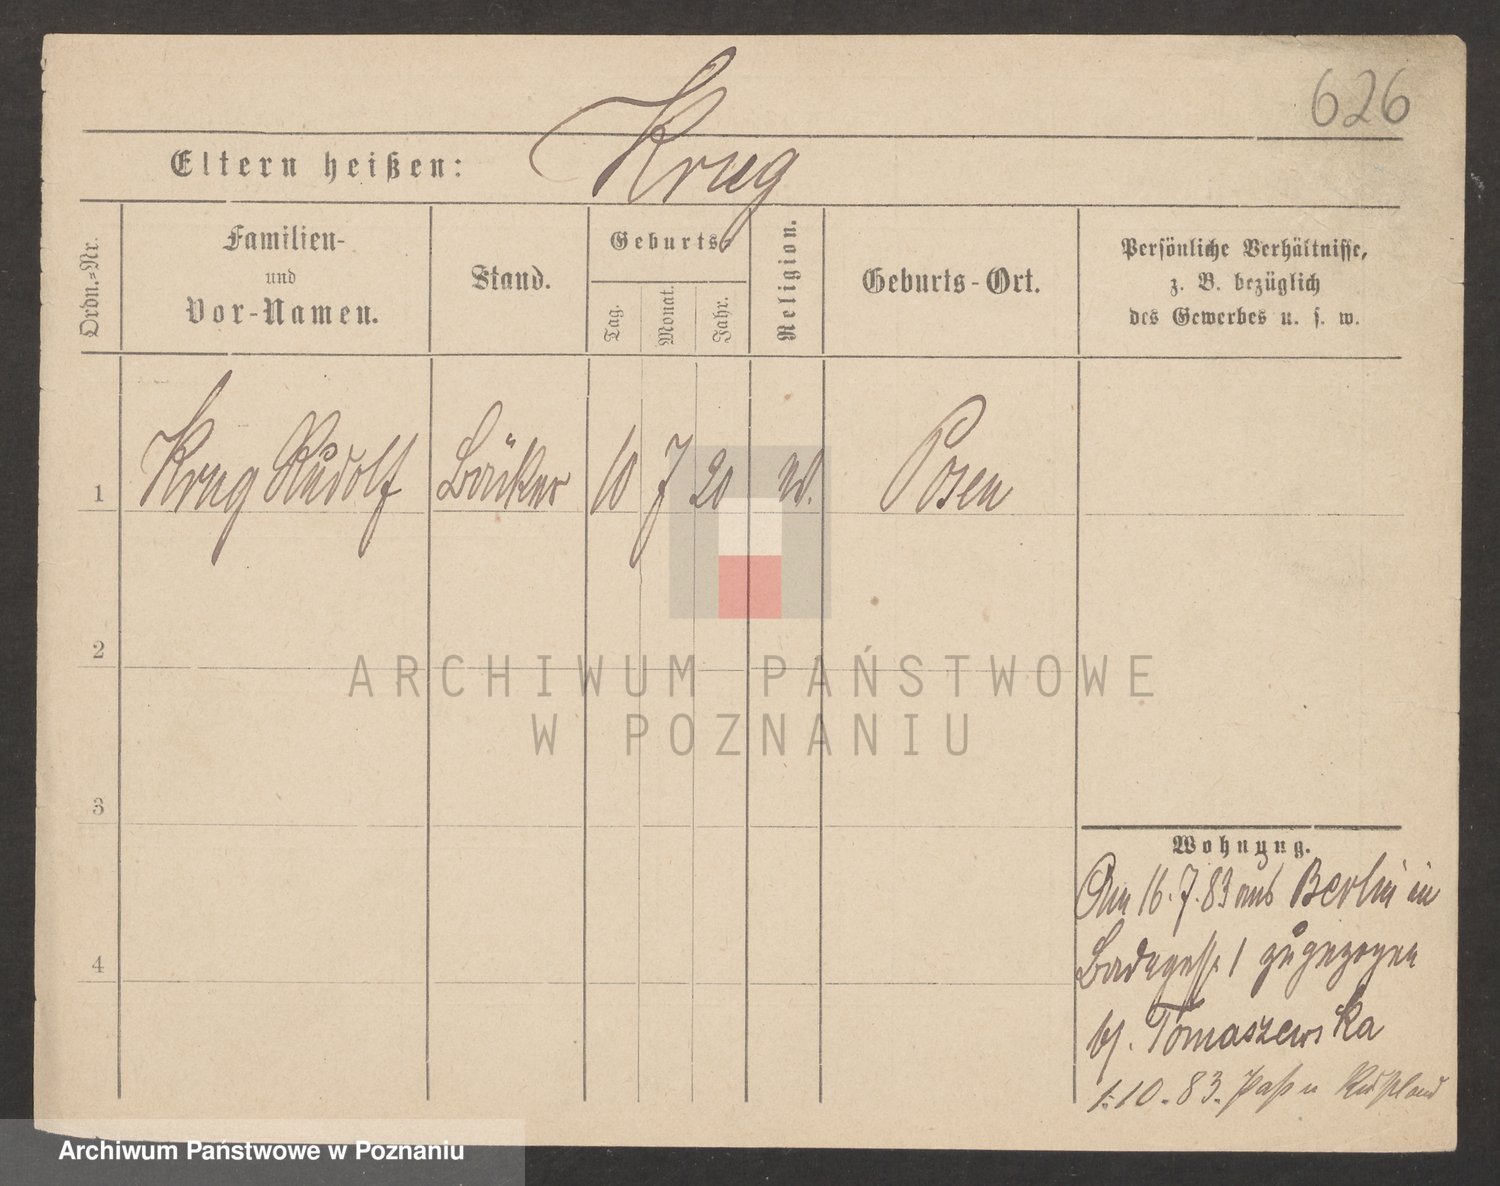 626
Krug
Eltern heißen:
Ordn.-Nr.
Familien-
und
Vor-Namen.
Stand.
Geburts-
Tag.
Monat.
Jahr.
Religion.
Geburts-Ort.
Persönliche Verhältnisse,
z. B. bezüglich
des Gewerbes u. s. w.
1 Krug Rudolf Bäcker 10 7 20 Posen
2
3
4
Wohnung.
Am 16.7.83 aus Berlin in
1 zugezogen
bj. Tomaszewska
1.10.83. Paß n Rußland
ARCHIWUM PAŃSTWOWE
W POZNANIU
Archiwum Państwowe w Poznaniu